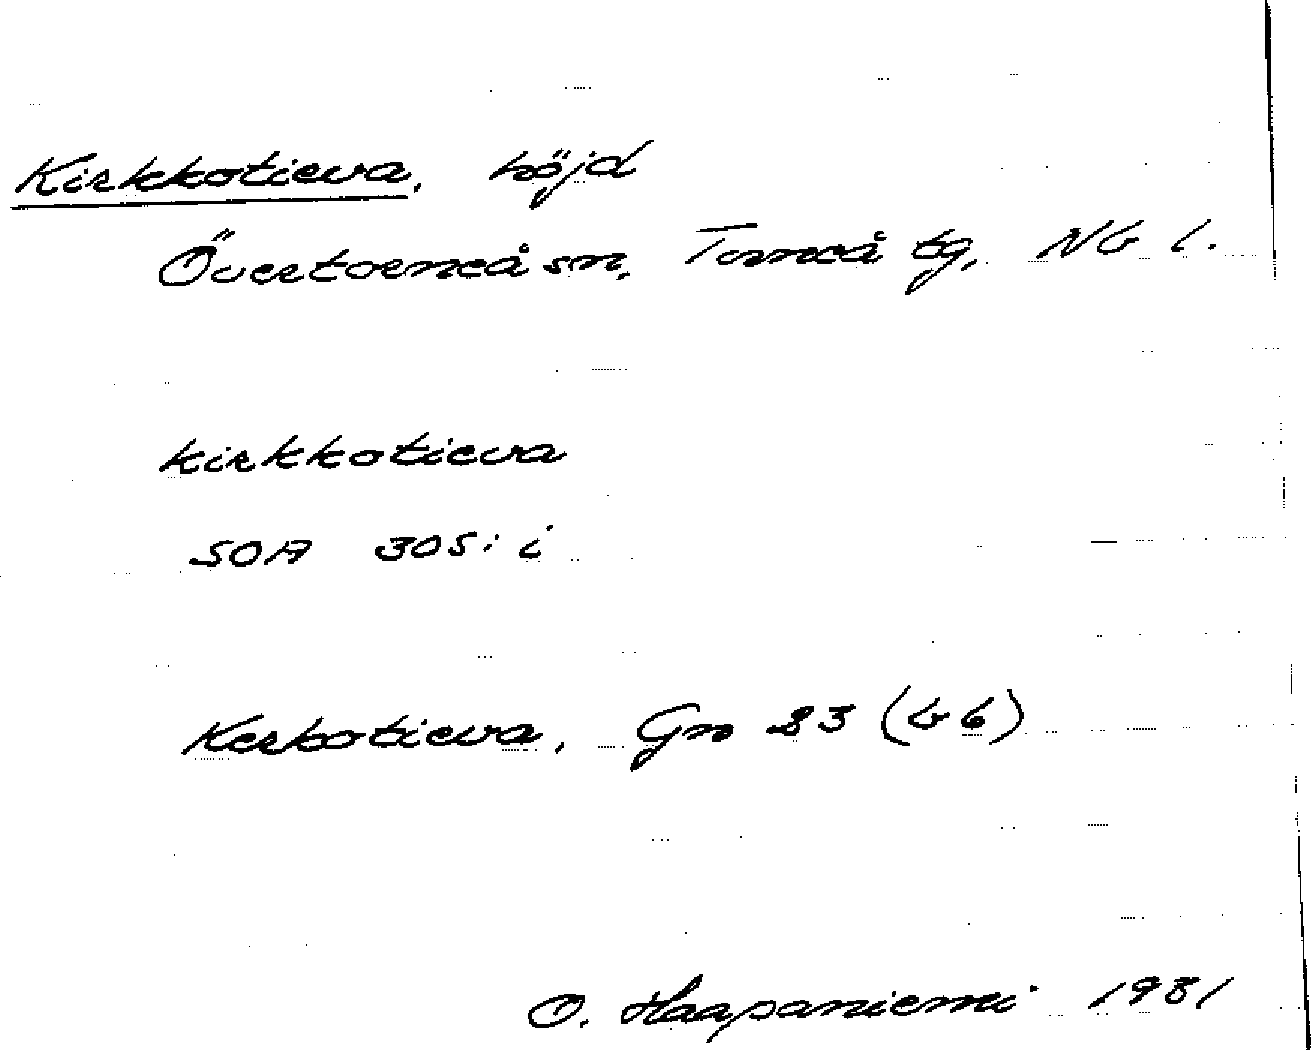 Kirkkotieva, höjd
Övertorneå sn, Torneå tg, Nb l.
kirkkotieva
SOA 305: i
Kerkotieva, Gn 23 (b6)
O. Haapaniemi 1981